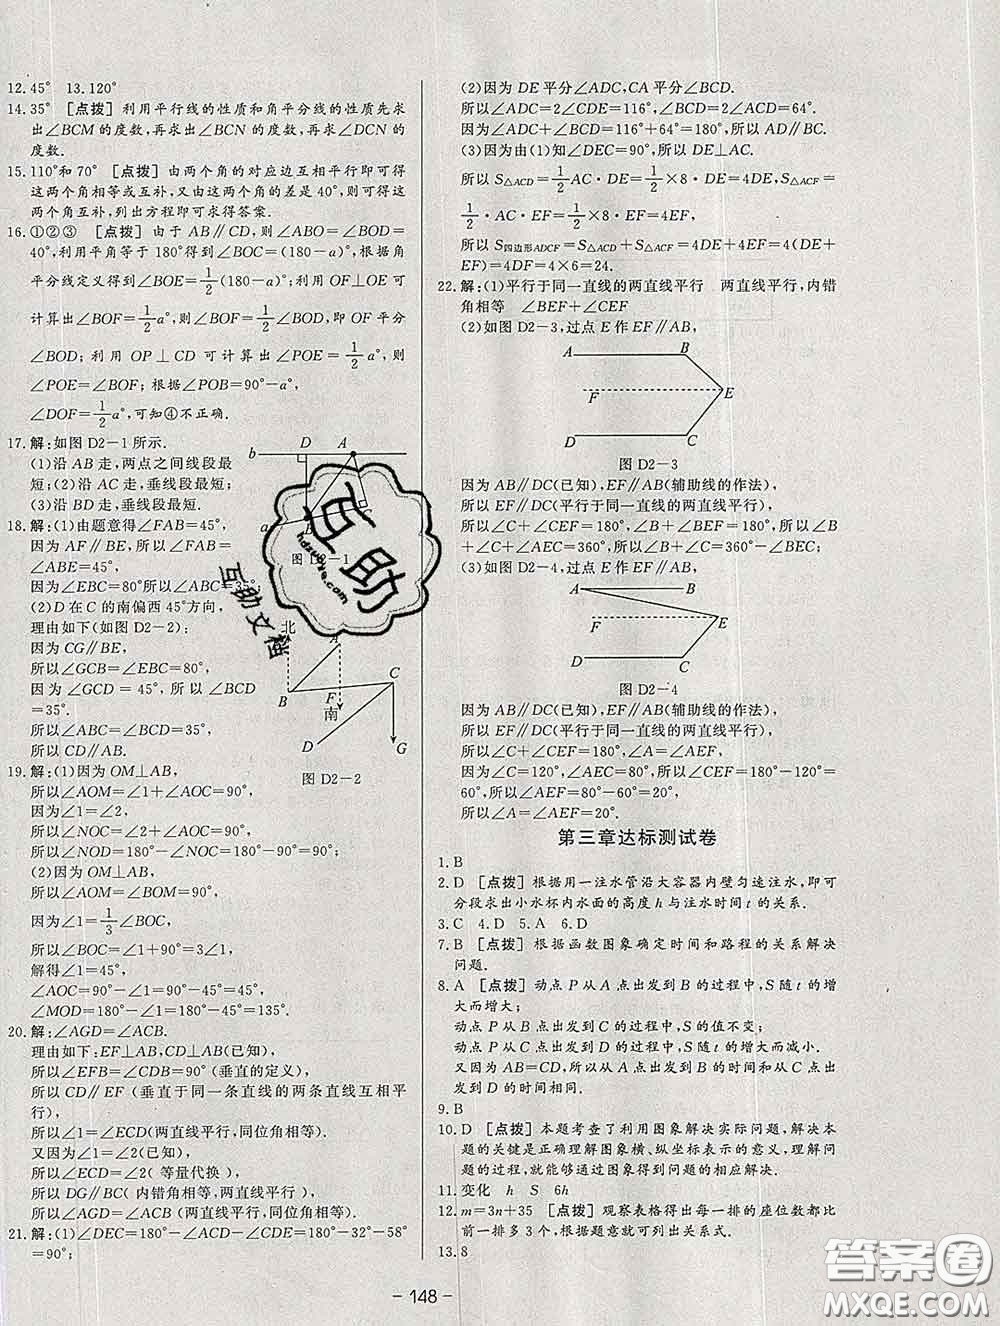 12.45°　13.120°
14.35°　[点拨]　利用平行线的性质和角平分线的性质先求
出∠BCM 的度数，再求出∠BCN 的度数，再求∠DCN 的
度数.
15.110°和 70°　[点拨]　由两个角的对应边互相平行即可得
这两个角相等或互补，又由这两个角的差是 40°，则可得
这两个角互补，列出方程即可求得答案.
16.①②③　[点拨]　由于 AB∥CD，则∠ABO=∠BOD=
40°，利用平角等于 180°得到∠BOC=(180-a)°，利用角
平分线定义得到∠BOE=1/2(180-a)°；利用 OF⊥OE 可
计算出∠BOF=1/2a°，得到∠BOF=1/2∠BOD，即 OF 平分
∠BOD；利用 OP⊥CD 可计算出∠POE=1/2a°，则
∠POE=∠BOF；根据∠POB=90°-a°，
∠DOF=1/2a°，可知④不正确.
17.解:如图 D2-1 所示.
(1)沿 AB 走，两点之间线段最
短；(2)沿 AC 走，垂线段最短；
(3)沿 BD 走，垂线段最短.
b D A
a B C
图 D2-1
18.解:(1)由题意得∠FAB=45°，
因为 AF∥BE，所以∠FAB=
∠ABE=45°，
因为∠EBC=80°所以∠ABC=35°；
(2)D 在 C 的南偏西 45°方向，
理由如下(如图 D2-2)：
因为 CG∥BE，
所以∠GCB=∠EBC=80°，
因为∠GCD=45°，所以∠BCD
=35°.
所以∠ABC=∠BCD=35°，
所以 CD∥AB.
北 A
B F C
南
D G
图 D2-2
19.解:(1)因为 OM⊥AB，
所以∠AOM=∠1+∠AOC=90°，
因为∠1=∠2，
所以∠NOC=∠2+∠AOC=90°，
所以∠NOD=180°-∠NOC=180°-90°=90°；
(2)因为 OM⊥AB，
所以∠AOM=∠BOM=90°，
因为∠1=1/3∠BOC，
所以∠BOC=∠1+90°=3∠1，
解得∠1=45°，
∠AOC=90°-∠1=90°-45°=45°，
∠MOD=180°-∠1=180°-45°=135°.
20.解:∠AGD=∠ACB.
理由如下:EF⊥AB，CD⊥AB(已知)，
所以∠EFB=∠CDB=90°(垂直的定义)，
所以 CD∥EF(垂直于同一条直线的两条直线互相平
行)，
所以∠1=∠ECD(两直线平行，同位角相等).
又因为∠1=∠2(已知)，
所以∠ECD=∠2(等量代换)，
所以 DG∥BC(内错角相等，两直线平行)，
所以∠AGD=∠ACB(两直线平行，同位角相等).
21.解:(1)∠DEC=180°-∠ACD-∠CDE=180°-32°-58°
=90°；
(2)因为 DE 平分∠ADC，CA 平分∠BCD.
所以∠ADC=2∠CDE=116°，∠BCD=2∠ACD=64°.
因为∠ADC+∠BCD=116°+64°=180°，所以 AD∥BC.
(3)因为由(1)知∠DEC=90°，所以 DE⊥AC.
所以 S△ACD=1/2AC·DE=1/2×8·DE=4DE，S△ACF=
1/2·AC·EF=1/2×8·EF=4EF，
所以 S四边形ADCF=S△ACD+S△ACF=4DE+4EF=4(DE+
EF)=4DF=4×6=24.
22.解:(1)平行于同一直线的两直线平行　两直线平行，内错
角相等　∠BEF+∠CEF
(2)如图 D2-3，过点 E 作 EF∥AB，
A B
F E
D C
图 D2-3
因为 AB∥DC(已知)，EF∥AB(辅助线的作法)，
所以 EF∥DC(平行于同一直线的两直线平行)，
所以∠C+∠CEF=180°，∠B+∠BEF=180°，所以∠B
+∠C+∠AEC=360°，所以∠B+∠C=360°-∠BEC；
(3)如图 D2-4，过点 E 作 EF∥AB，
A B
F E
D C
图 D2-4
因为 AB∥DC(已知)，EF∥AB(辅助线的作法)，
所以 EF∥DC(平行于同一直线的两直线平行)，
所以∠C+∠CEF=180°，∠A=∠AEF，
因为∠C=120°，∠AEC=80°，所以∠CEF=180°-120°=
60°，所以∠AEF=80°-60°=20°，
所以∠A=∠AEF=20°.
第三章达标测试卷
1.B
2.D　[点拨]　根据用一注水管沿大容器内壁匀速注水，即可
分段求出小水杯内水面的高度 h 与注水时间 t 的关系.
3.C　4.D　5.A　6.D
7.B　[点拨]　根据函数图象确定时间和路程的关系解决
问题.
8.A　[点拨]　动点 P 从 A 点出发到 B 的过程中，S 随 t 的增
大而增大；
动点 P 从 B 点出发到 C 的过程中，S 的值不变；
动点 P 从 C 点出发到 D 的过程中，S 随 t 的增大而减小.
又因为 AB=CD，所以从 A 点出发到 B 的时间和从 C 点出
发到 D 的时间相同.
9.B
10.D　[点拨]　本题考查了利用图象解决实际问题，解决本
题的关键是正确理解图象横、纵坐标表示的意义，理解问
题的过程，就能够通过图象得到问题的相应解决.
11.变化　h　S　6h
12.m=3n+35　[点拨]　观察表格得出每一排的座位数都比
前一排多 3 个，根据题意就可列出关系式.
13.8
- 148 -
互助
hdzuoye.com
互助文档
答案圈
MXQE.COM